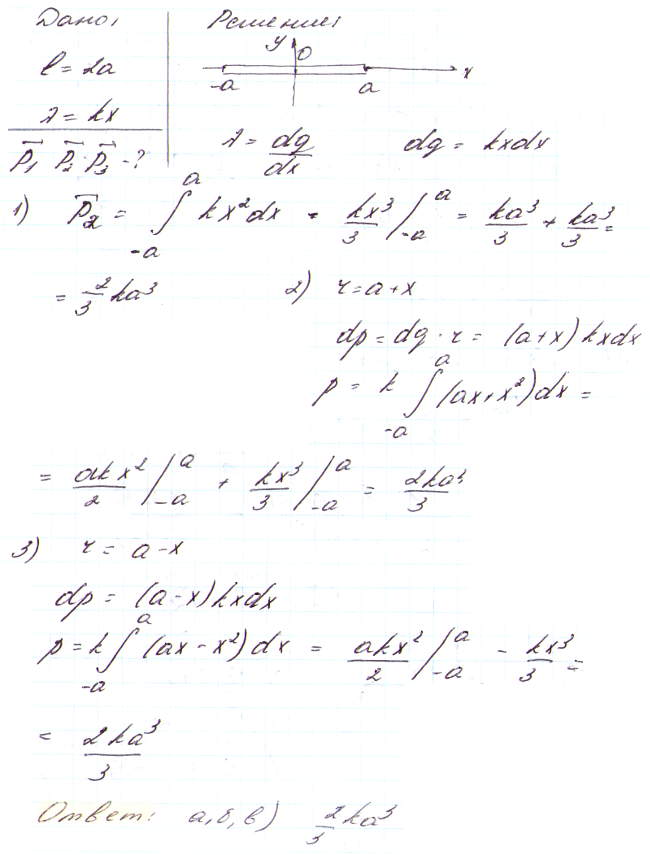 Дано: Решение:
y O
-a a x
l = 2a
λ = kx
P⃗₁ P⃗₂ P⃗₃ - ?
λ = dq/dx dq = kxdx
1) P⃗₂ = ∫_{-a}^{a} kx²dx = kx³/3 |_{-a}^{a} = ka³/3 + ka³/3 =
= 2/3 ka³ 2) r = a+x
dp = dq · r = (a+x) kxdx
p = k ∫_{-a}^{a} (ax+x²)dx =
= akx²/2 |_{-a}^{a} + kx³/3 |_{-a}^{a} = 2ka³/3
3) r = a-x
dp = (a-x)kxdx
p = k ∫_{-a}^{a} (ax-x²)dx = akx²/2 |_{-a}^{a} - kx³/3 =
= 2ka³/3
Ответ: а, б, в) 2/3 ka³